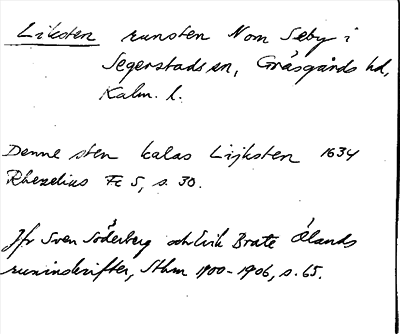 Liksten runsten N om Seby i
Segerstads sn, Gräsgårds hd,
Kalm. l.
Denne sten kalas Lijksten 1634
Rhezelius Fc 5, s. 30.
Jfr Sven Söderberg och Erik Brate Ölands
runinskrifter, Sthm 1900-1906, s. 65.